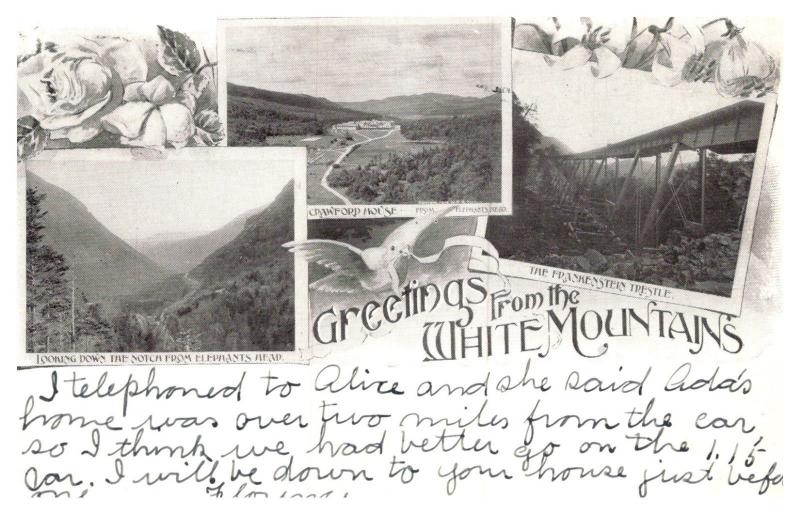 CRAWFORD HOUSE FROM ELEPHANTS HEAD.
THE FRANKENSTEIN TRESTLE.
LOOKING DOWN THE NOTCH FROM ELEPHANTS HEAD.
Greetings from the
WHITE MOUNTAINS
I telephoned to Alice and she said Ada's
home was over two miles from the car
so I think we had better go on the 1.15
car. I will be down to your house just befo
one